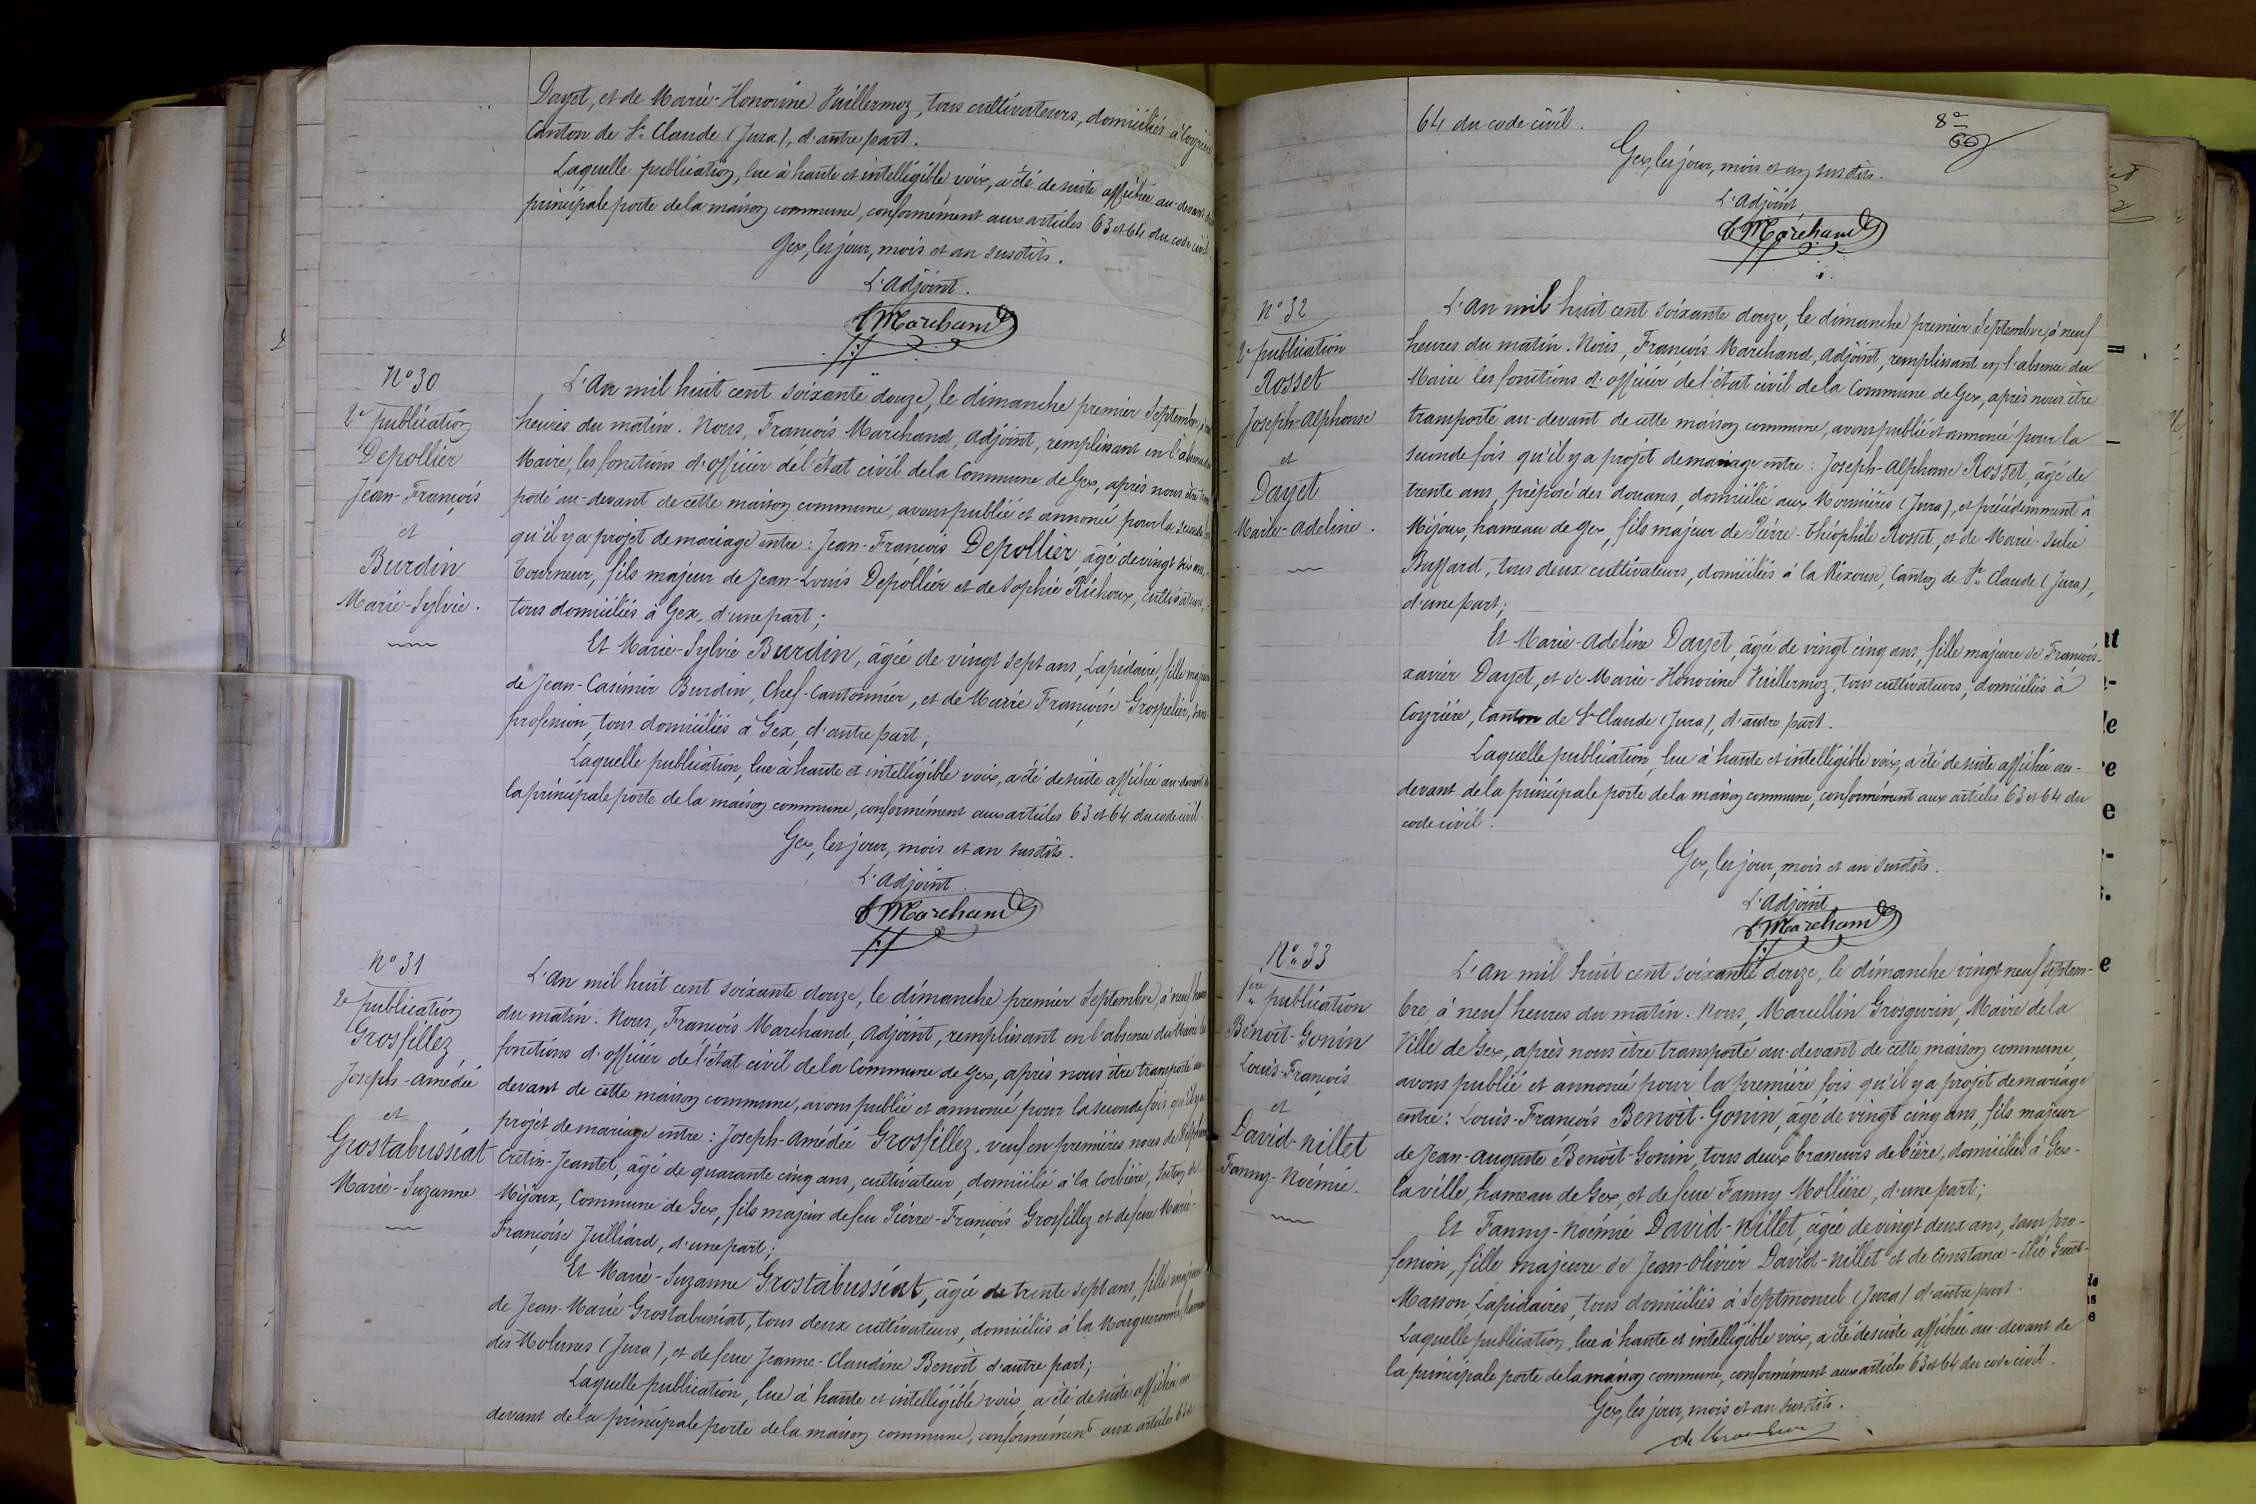 Dayet, et de Marie-Honorine Vuillermoz, tous cultivateurs, domiciliés à Coyrière
Canton de St Claude (Jura), d'autre part.
Laquelle publication, lue à haute et intelligible voix, a été de suite affichée au-devant de la
principale porte de la maison commune, conformément aux articles 63 et 64 du code civil.
Gex, les jour, mois et an susdits.
L'Adjoint.
f Marchand
N° 30
2e publication
Depollier
Jean-François
et
Burdin
Marie-Sylvie.
L'An mil huit cent soixante douze, le dimanche premier Septembre, à neuf
heures du matin. Nous, François Marchand, adjoint, remplissant en l'absence du
Maire, les fonctions d'officier de l'état civil de la Commune de Gex, après nous être trans-
porté au-devant de cette maison commune, avons publié et annoncé pour la seconde fois
qu'il y a projet de mariage entre: Jean-François Depollier âgé de vingt six ans,
Tourneur, fils majeur de Jean-Louis Depollier et de Sophie Richoux, cultivateurs,
tous domiciliés à Gex, d'une part;
Et Marie-Sylvie Burdin, âgée de vingt sept ans, Lapidaire, fille majeure
de Jean-Casimir Burdin, Chef-Cantonnier, et de Marie Françoise Grospelier, sans
profession, tous domiciliés à Gex, d'autre part;
Laquelle publication, lue à haute et intelligible voix, a été de suite affichée au-devant de
la principale porte de la maison commune, conformément aux articles 63 et 64 du code civil.
Gex, les jour, mois et an susdits.
L'Adjoint.
f Marchand
N° 31
2e publication
Grosfillez
Joseph-Amédée
et
Grostabussiat
Marie-Suzanne
L'An mil huit cent soixante douze, le dimanche premier Septembre, à neuf heures
du matin. Nous, François Marchand, Adjoint, remplissant en l'absence du Maire les
fonctions d'officier de l'état civil de la Commune de Gex, après nous être transporté au-
devant de cette maison commune, avons publié et annoncé pour la seconde fois qu'il y a
projet de mariage entre: Joseph-Amédée Grosfillez, veuf en premières noces de Delphine
Crétin-Jeantet, âgé de quarante cinq ans, cultivateur, domicilié à la Corbière, Section de
Mijoux, Commune de Gex, fils majeur de feu Pierre-François Grosfillez et de feue Marie-
Françoise Julliard, d'une part;
Et Marie-Suzanne Grostabussiat, âgée de trente sept ans, fille majeure
de Jean-Marie Grostabussiat, tous deux cultivateurs, domiciliés à la Marqueronne, hameau
des Molunes (Jura), et de feue Jeanne-Claudine Benoît d'autre part;
Laquelle publication, lue à haute et intelligible voix, a été de suite affichée au-
devant de la principale porte de la maison commune, conformément aux articles 63 et
64 du code civil.
8e
Gex, les jour, mois et an susdits.
L'Adjoint
f Marchand
N° 32
2e publication
Rosset
Joseph-Alphonse
et
Dayet
Marie-Adeline.
L'An mil huit cent soixante douze, le dimanche premier Septembre, à neuf
heures du matin. Nous, François Marchand, Adjoint, remplissant en l'absence du
Maire les fonctions d'officier de l'état civil de la Commune de Gex, après nous être
transporté au-devant de cette maison commune, avons publié et annoncé pour la
seconde fois qu'il y a projet de mariage entre: Joseph-Alphonse Rosset, âgé de
trente ans, préposé des douanes, domicilié aux Mournières (Jura), et précédemment à
Mijoux, hameau de Gex, fils majeur de Pierre-Théophile Rosset, et de Marie-Julie
Buffard, tous deux cultivateurs, domiciliés à la Rixouse, Canton de St Claude (Jura),
d'une part;
Et Marie-Adeline Dayet, âgée de vingt cinq ans, fille majeure de François-
xavier Dayet, et de Marie-Honorine Vuillermoz, tous cultivateurs, domiciliés à
Coyrière, Canton de St Claude (Jura), d'autre part.
Laquelle publication, lue à haute et intelligible voix, a été de suite affichée au-
devant de la principale porte de la maison commune, conformément aux articles 63 et 64 du
code civil.
Gex, les jour, mois et an susdits.
L'Adjoint
f Marchand
N° 33
1ère publication
Benoit-Gonin
Louis-François
et
David-Nillet
Fanny-Noémie.
L'An mil huit cent soixante douze, le dimanche vingt-neuf Septem-
bre, à neuf heures du matin. Nous, Marcellin Grosgurin, Maire de la
Ville de Gex, après nous être transporté au-devant de cette maison commune,
avons publié et annoncé pour la première fois qu'il y a projet de mariage
entre: Louis-François Benoit-Gonin, âgé de vingt cinq ans, fils majeur
de Jean-Auguste Benoit-Gonin, tous deux brasseurs de bière, domiciliés à Gex-
la ville, hameau de Gex, et de feue Fanny Mollière, d'une part;
Et Fanny-Noémie David-Nillet, âgée de vingt deux ans, sans pro-
fession, fille majeure de Jean-Olivier David-Nillet et de Constance-Clie
Masson Lapidaires, tous domiciliés à Septmoncel (Jura) d'autre part.
Laquelle publication, lue à haute et intelligible voix, a été de suite affichée au-devant de
la principale porte de la maison commune, conformément aux articles 63 et 64 du code civil.
Gex, les jour, mois et an susdits.